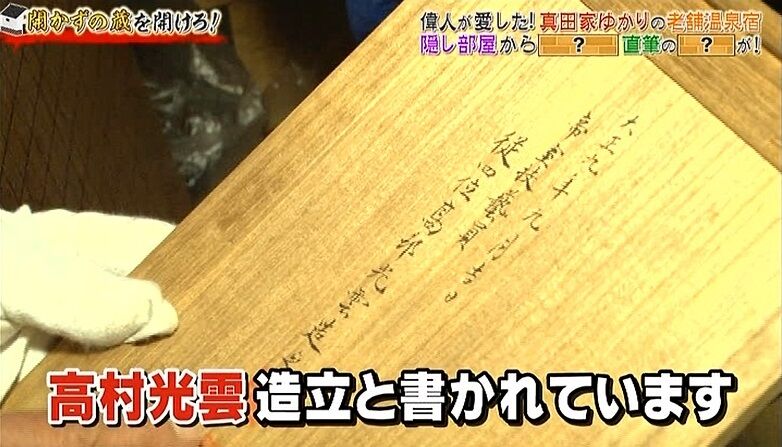 開かずの蔵を開けろ!
偉人が愛した!真田家ゆかりの老舗温泉宿
隠し部屋から ? 直筆の ? が!
大正九年九月吉日
帝室技藝員
従四位高邨光雲造之
高村光雲 造立と書かれています